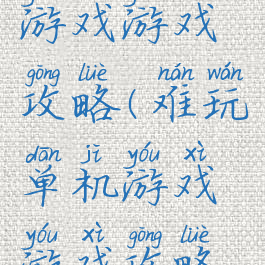 游戏游戏
gōng lüè nán wán
攻略(难玩
dān jī yóu xì
单机游戏
yóu xì gōng lüè
游戏攻略